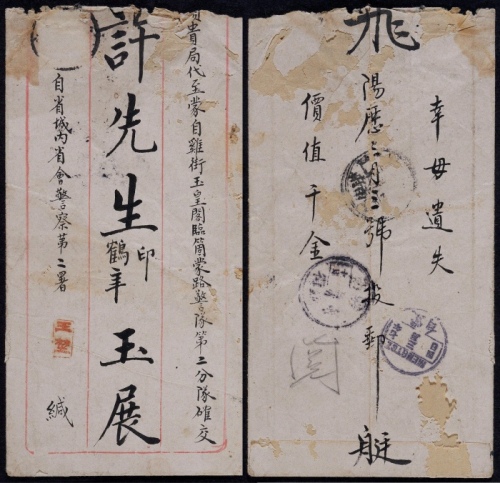 貴局代至蒙自雞街玉皇閣臨箇蒙路警隊第二分隊確交
許先生印鶴年玉展
自省城內省會警察第二署
緘
幸毋遺失
飛
陽歷二月三號投郵
艇
價值千金
MENGTSZ